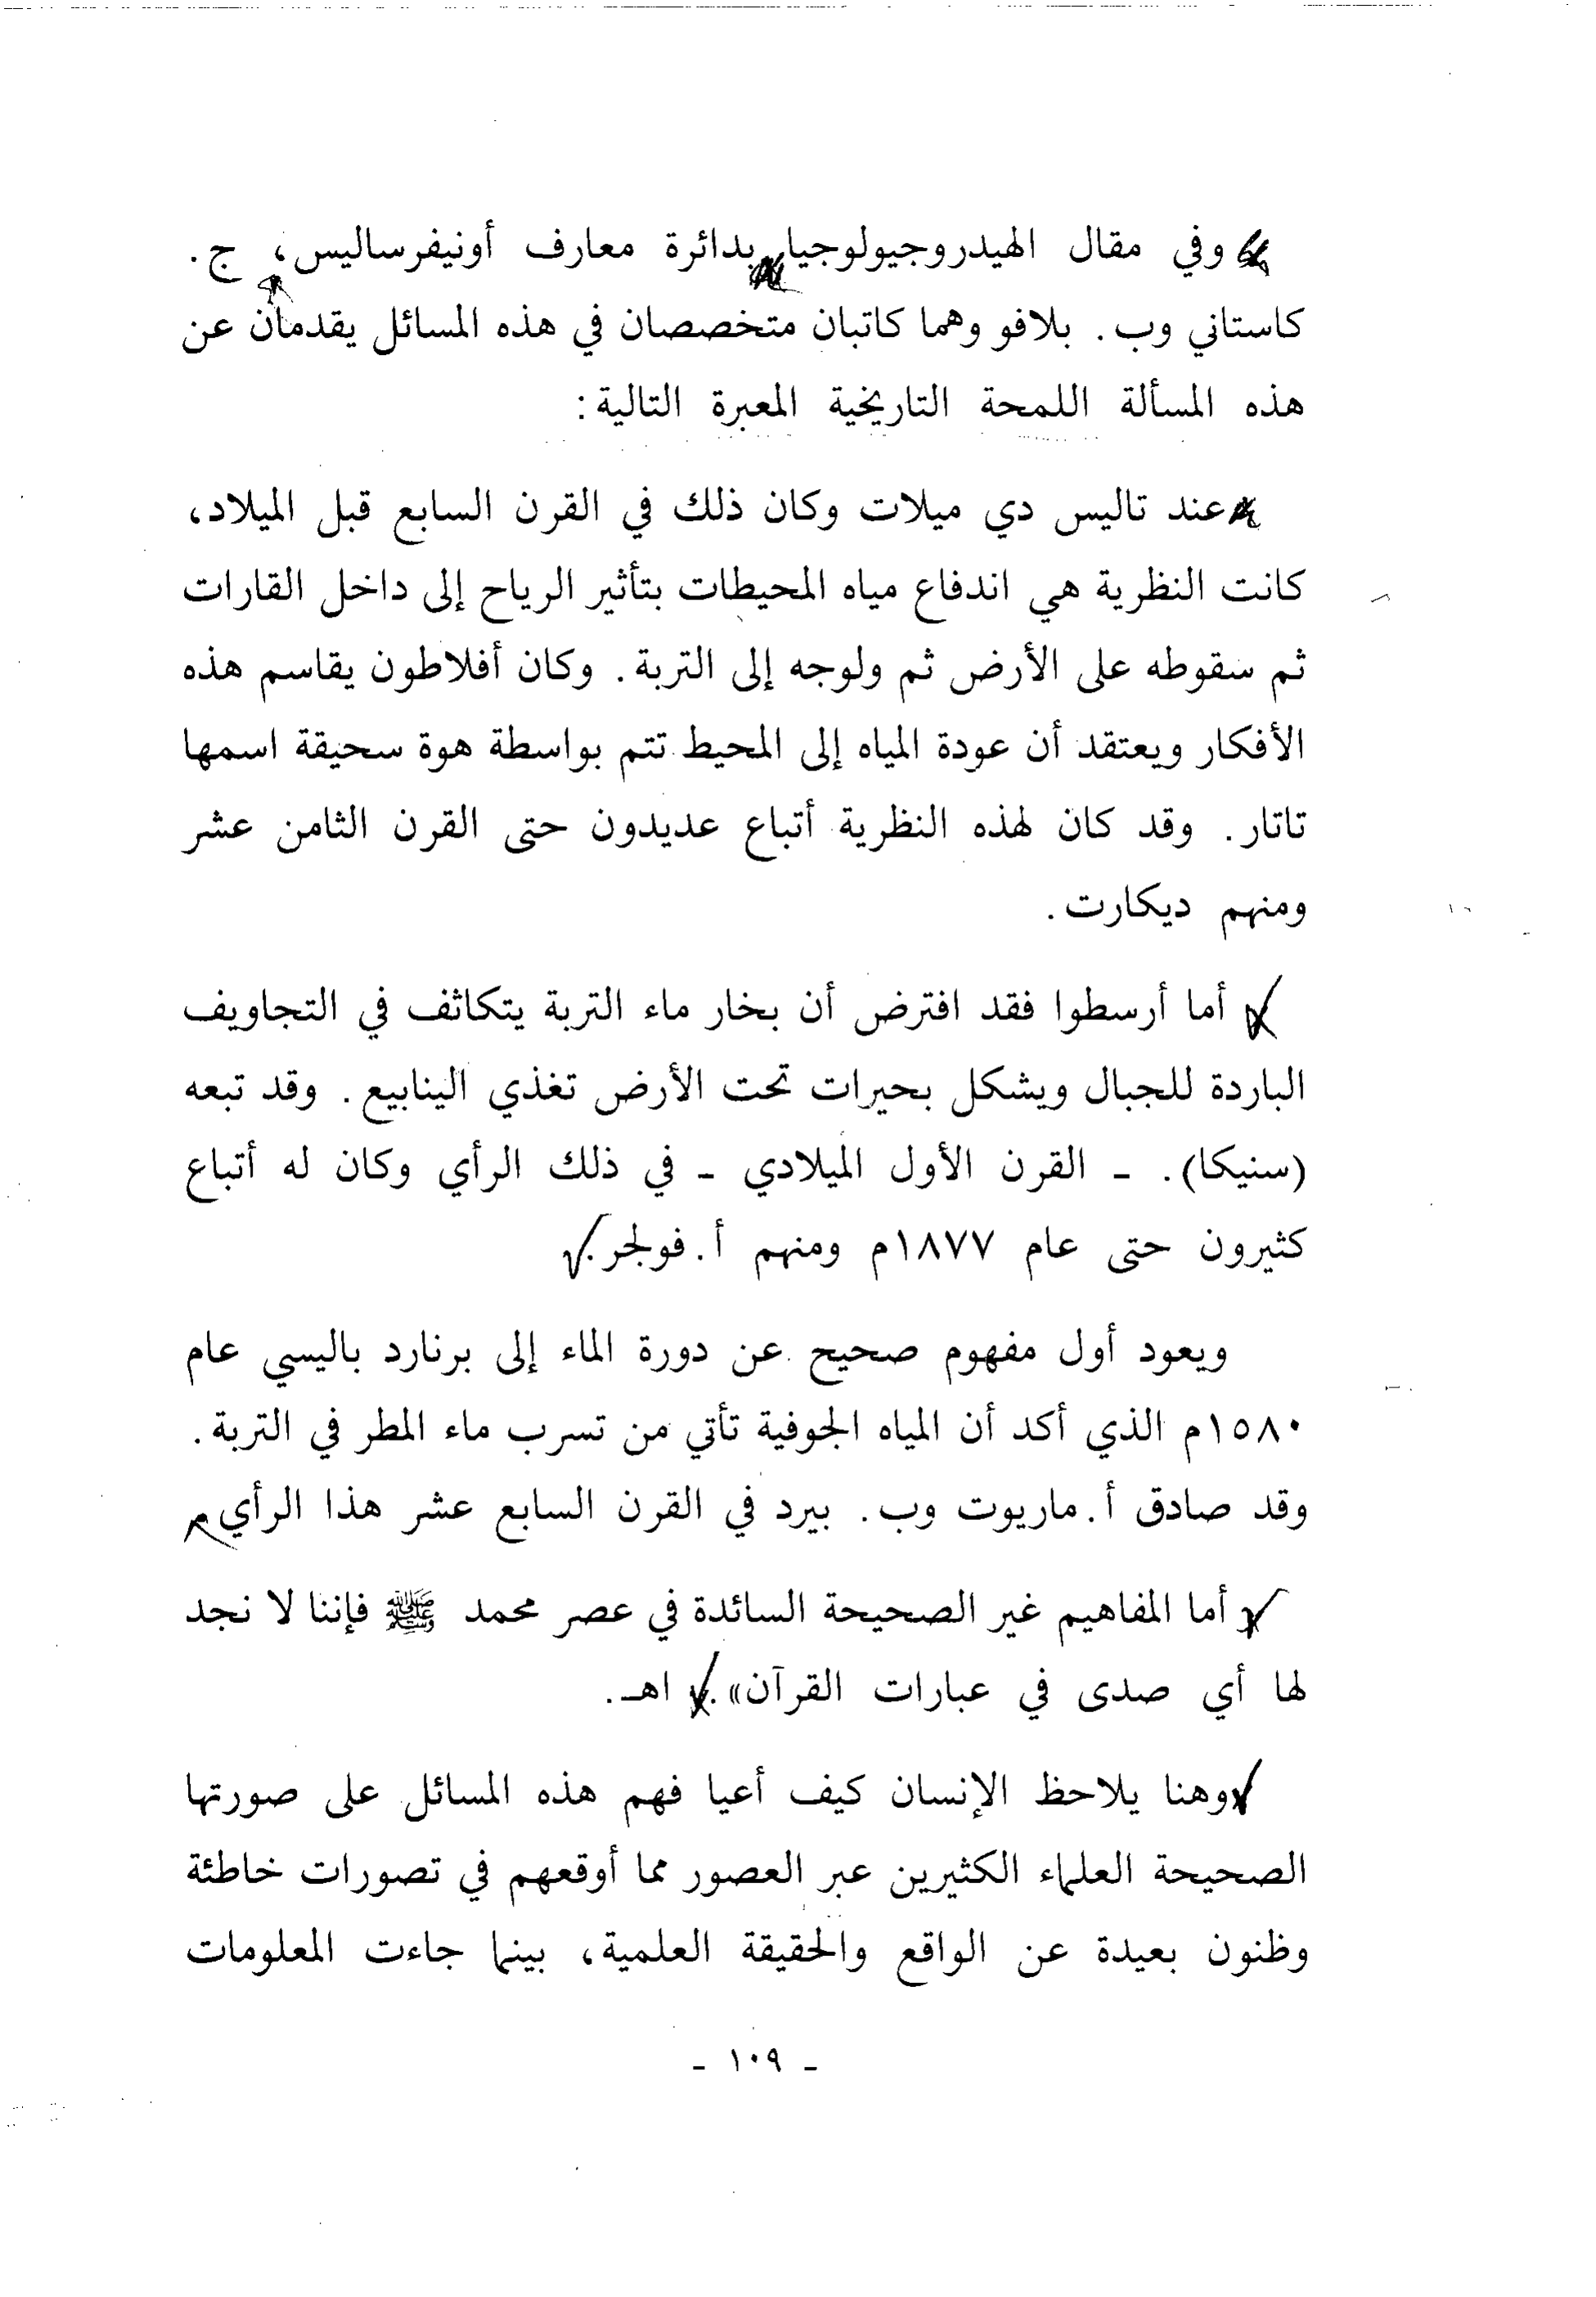 وفي مقال الهيدروجيولوجيا بدائرة معارف أونيفرساليس، ج.
كاستاني وب. بلافو وهما كاتبان متخصصان في هذه المسائل يقدمان عن
هذه المسألة اللمحة التاريخية المعبرة التالية:
عند تاليس دي ميلات وكان ذلك في القرن السابع قبل الميلاد،
كانت النظرية هي اندفاع مياه المحيطات بتأثير الرياح إلى داخل القارات
ثم سقوطه على الأرض ثم ولوجه إلى التربة. وكان أفلاطون يقاسم هذه
الأفكار ويعتقد أن عودة المياه إلى المحيط تتم بواسطة هوة سحيقة اسمها
تاتار. وقد كان لهذه النظرية أتباع عديدون حتى القرن الثامن عشر
ومنهم ديكارت.
أما أرسطوا فقد افترض أن بخار ماء التربة يتكاثف في التجاويف
الباردة للجبال ويشكل بحيرات تحت الأرض تغذي الينابيع. وقد تبعه
(سنيكا). ـ القرن الأول الميلادي ـ في ذلك الرأي وكان له أتباع
كثيرون حتى عام ١٨٧٧م ومنهم أ. فولجر.
ويعود أول مفهوم صحيح عن دورة الماء إلى برنارد باليسي عام
١٥٨٠م الذي أكد أن المياه الجوفية تأتي من تسرب ماء المطر في التربة.
وقد صادق أ. ماريوت وب. بيرد في القرن السابع عشر هذا الرأي
أما المفاهيم غير الصحيحة السائدة في عصر محمد ﷺ فإننا لا نجد
لها أي صدى في عبارات القرآن». اهـ.
وهنا يلاحظ الإنسان كيف أعيا فهم هذه المسائل على صورتها
الصحيحة العلماء الكثيرين عبر العصور مما أوقعهم في تصورات خاطئة
وظنون بعيدة عن الواقع والحقيقة العلمية، بينما جاءت المعلومات
ـ ١٠٩ ـ